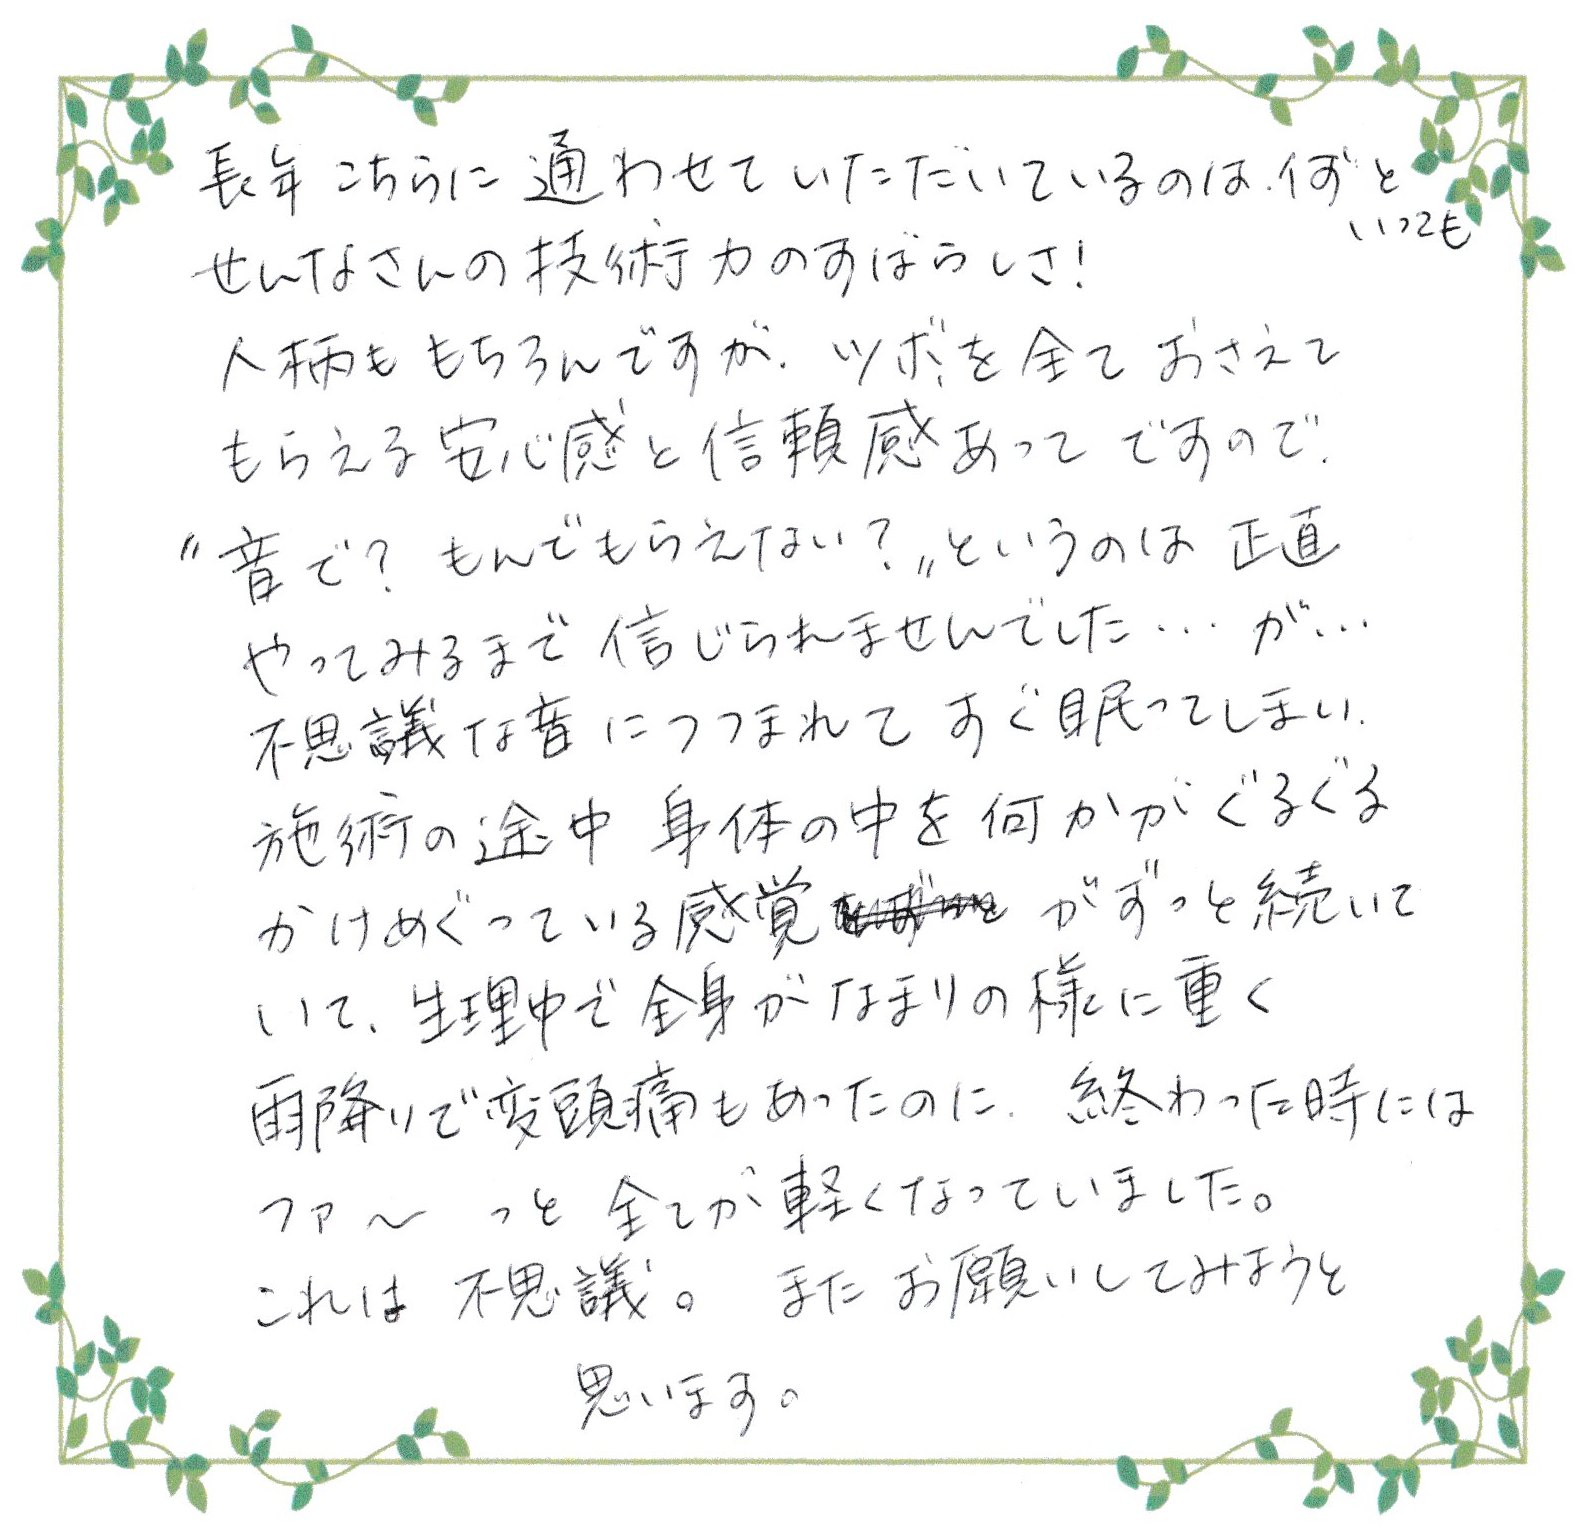 長年こちらに通わせていただいているのは、何と
いっても
せんなさんの技術力のすばらしさ!
人柄ももちろんですが、ツボを全ておさえて
もらえる安心感と信頼感あってですので、
〝音で?もんでもらえない?〟というのは正直
やってみるまで信じられませんでした…が…
不思議な音につつまれてすぐ眠ってしまい、
施術の途中身体の中を何かがぐるぐる
かけめぐっている感覚がずっと続いて
いて、生理中で全身がなまりの様に重く
雨降りで変頭痛もあったのに、終わった時には
ファ〜っと全てが軽くなっていました。
これは不思議。またお願いしてみようと
思います。